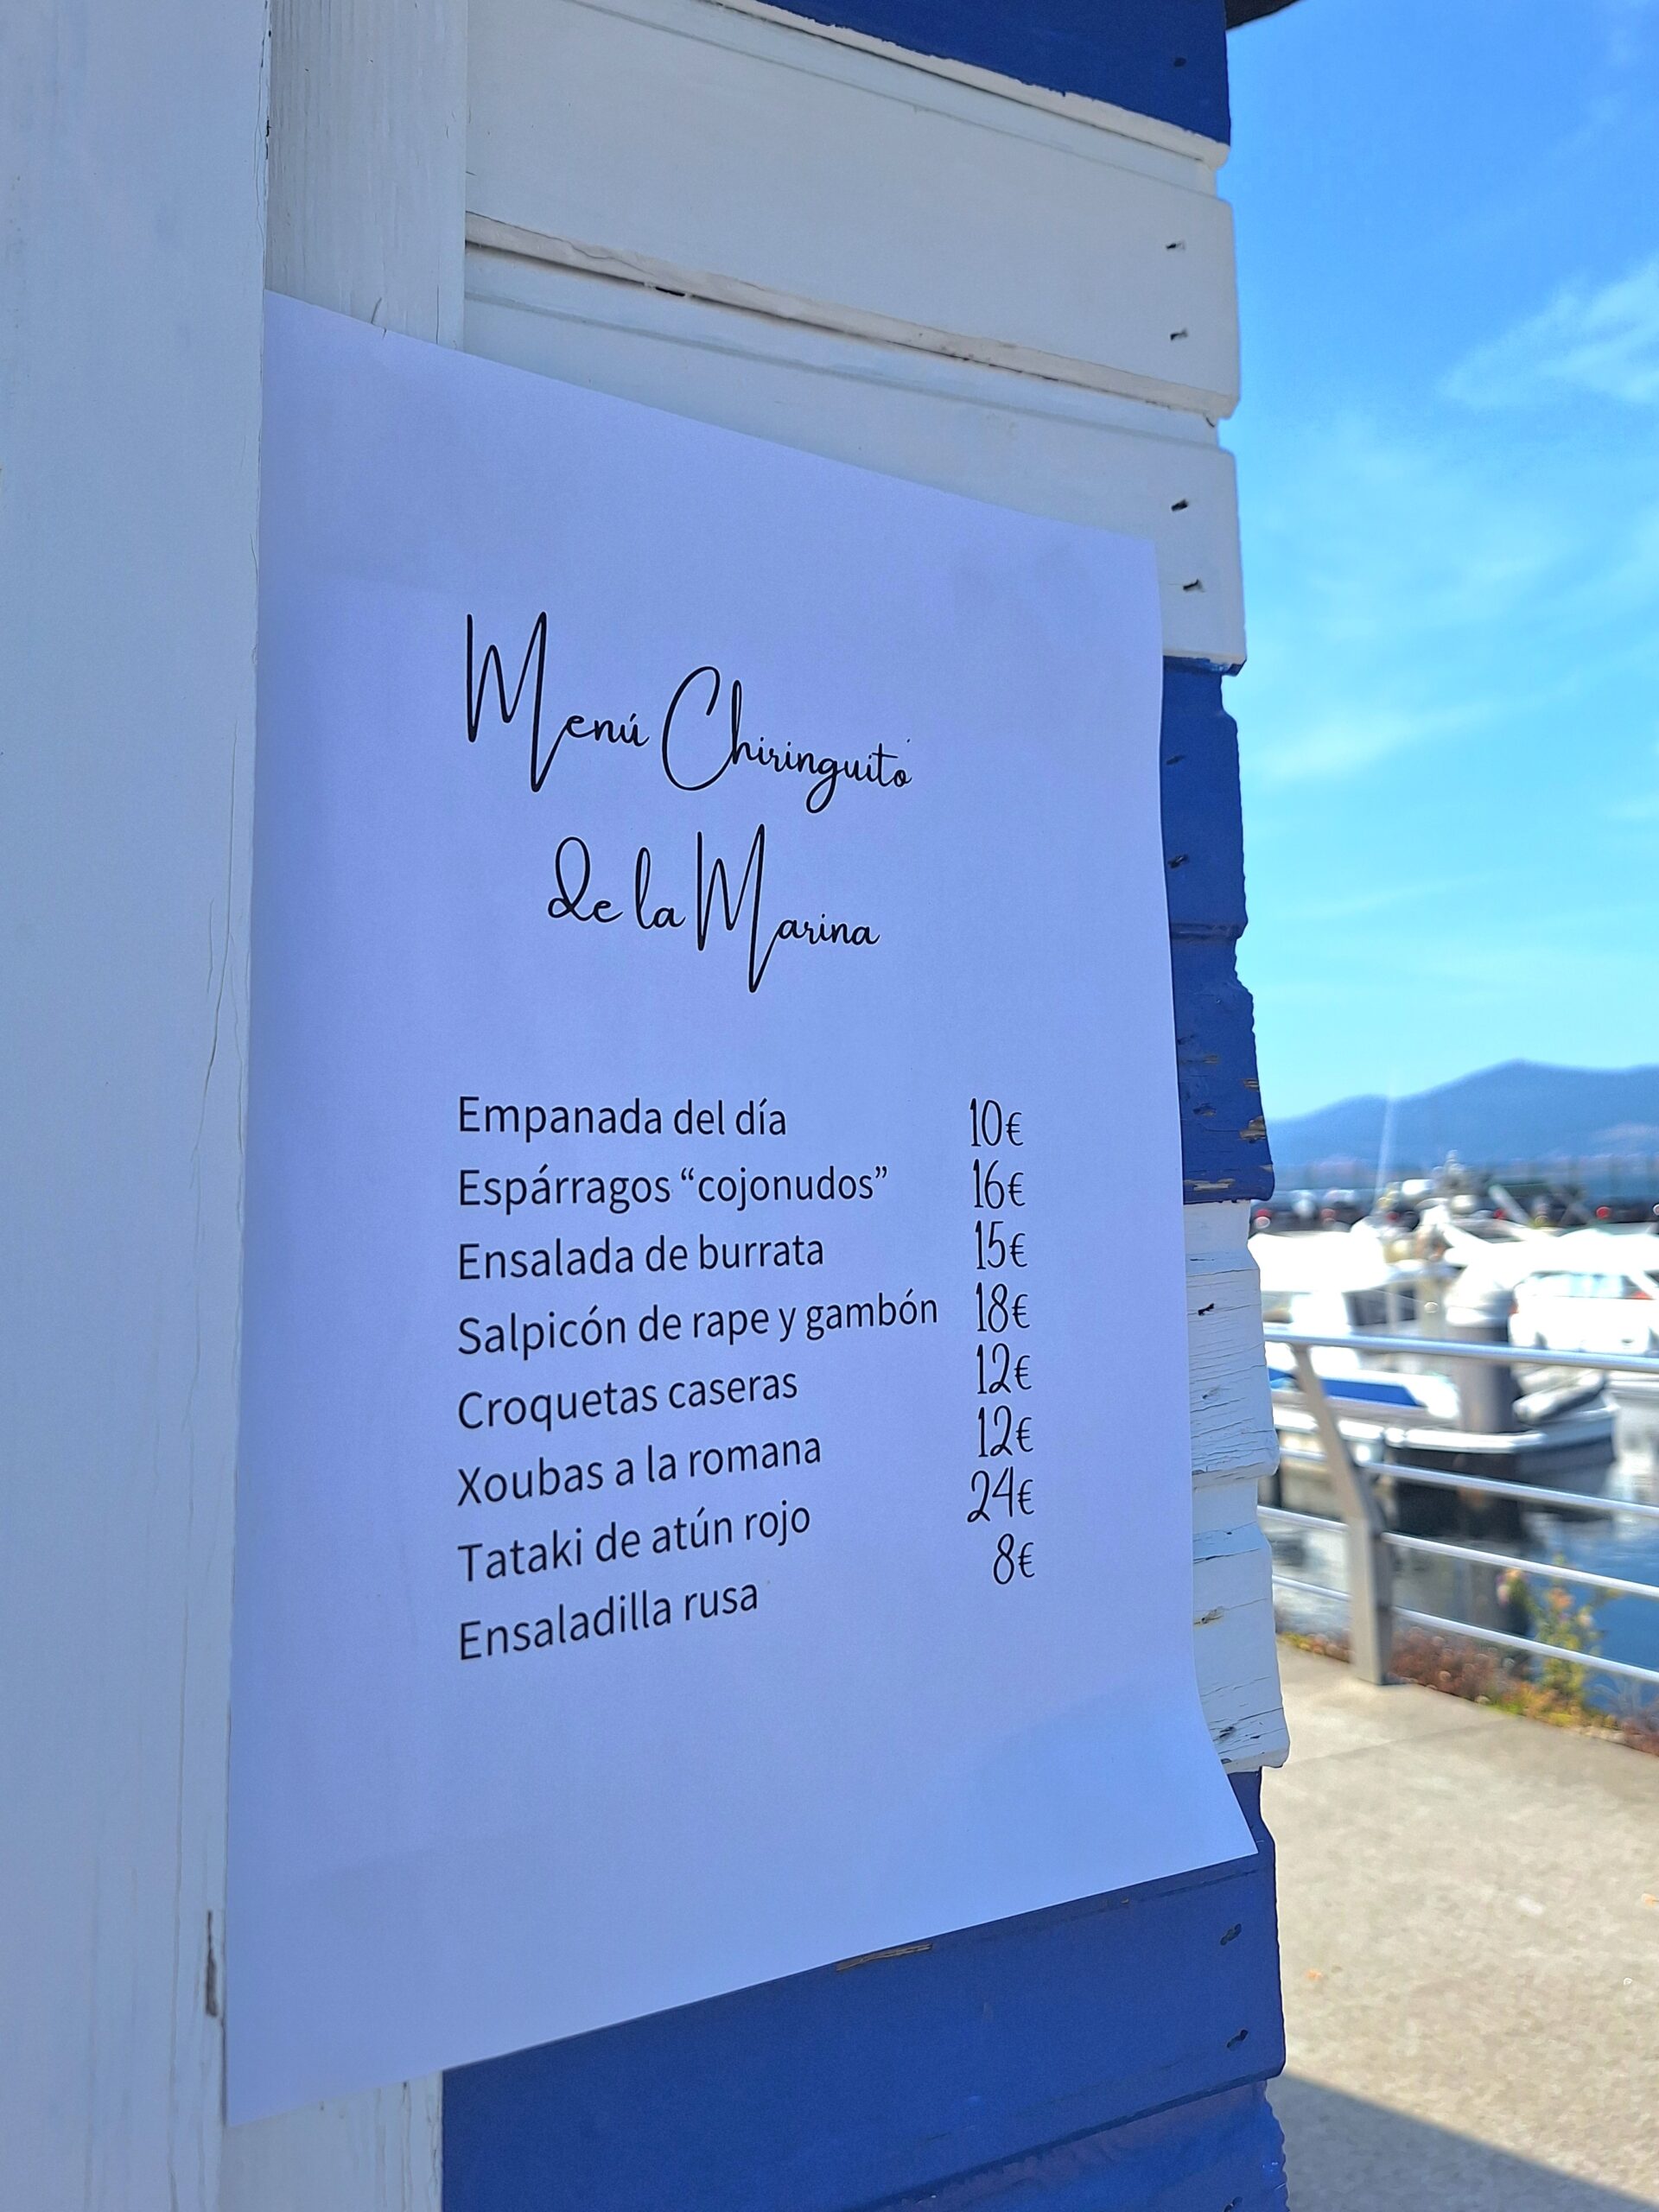 Menú Chiringuito
de la Marina
Empanada del día 10€
Espárragos “cojonudos” 16€
Ensalada de burrata 15€
Salpicón de rape y gambón 18€
Croquetas caseras 12€
Xoubas a la romana 12€
Tataki de atún rojo 24€
Ensaladilla rusa 8€